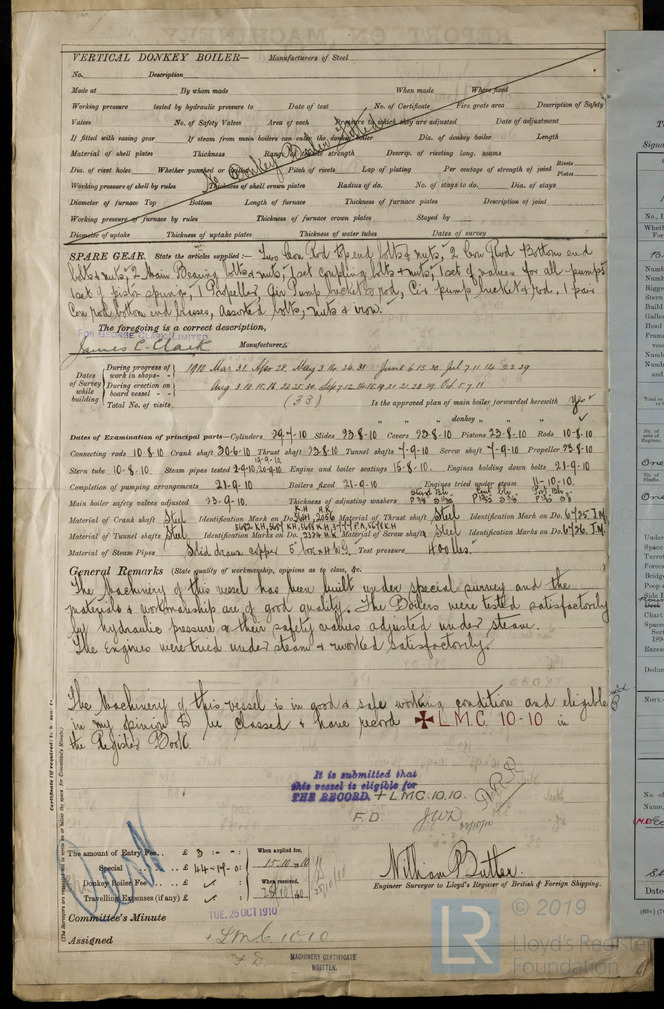 VERTICAL DONKEY BOILER— Manufacturers of Steel
No. Description
Made at By whom made When made Where fixed
Working pressure tested by hydraulic pressure to Date of test No. of Certificate Fire grate area Description of Safety
Valves No. of Safety Valves Area of each Pressure to which they are adjusted Date of adjustment
If fitted with easing gear If steam from main boilers can enter the donkey boiler Dia. of donkey boiler Length
Material of shell plates Thickness Range of tensile strength Descrip. of riveting long. seams
Dia. of rivet holes Whether punched or drilled Pitch of rivets Lap of plating Per centage of strength of joint Rivets Plates
Working pressure of shell by rules Thickness of shell crown plates Radius of do. No. of stays to do. Dia. of stays
Diameter of furnace Top Bottom Length of furnace Thickness of furnace plates Description of joint
Working pressure of furnace by rules Thickness of furnace crown plates Stayed by
Diameter of uptake Thickness of uptake plates Thickness of water tubes Dates of survey
No Donkey Boiler fitted
SPARE GEAR. State the articles supplied:— Two Con Rod top end bolts & nuts, 2 Con Rod Bottom end
bolts & nuts, 2 Main Bearing bolts & nuts, 1 set coupling bolts & nuts, 1 set of valves for all pumps
1 set of piston springs, 1 Propeller, Air Pump bucket & rod, Cir pump bucket & rod, 1 pair
Con rod bottom end brasses, assorted bolts, nuts & iron.
The foregoing is a correct description,
FOR GEORGE CLARK LIMITED
James C. Clark Manufacturer.
Dates of Survey while building
During progress of work in shops - - 1910 Mar. 31. Apr 28. May 3. 14. 24. 31 June 6. 15. 30. Jul 7. 11. 14. 22. 29
During erection on board vessel - - Aug 3. 10. 15. 16. 23. 25. 30. Sep 7. 12. 14. 15. 19. 20. 21. 28. 29. Oct 5. 7. 11
Total No. of visits (33) Is the approved plan of main boiler forwarded herewith yes
" " " donkey " " "
Dates of Examination of principal parts—Cylinders 29-7-10 Slides 23-8-10 Covers 23-8-10 Pistons 23-8-10 Rods 10-8-10
Connecting rods 10-8-10 Crank shaft 30-6-10 Thrust shaft 23-8-10 Tunnel shafts 7-9-10 Screw shaft 7-9-10 Propeller 23-8-10
Stern tube 10-8-10. Steam pipes tested 2-9-10, 20-9-10. Engine and boiler seatings 15-8-10. Engines holding down bolts 21-9-10
Completion of pumping arrangements 21-9-10 Boilers fixed 21-9-10 Engines tried under steam 11-10-10.
Main boiler safety valves adjusted 23-9-10. Thickness of adjusting washers
Material of Crank shaft Steel Identification Mark on Do. Material of Thrust shaft Steel Identification Mark on Do. 6725 I.M.
Material of Tunnel shafts Steel Identification Marks on Do. Material of Screw shafts Steel Identification Marks on Do. 6726. I.M.
Material of Steam Pipes Solid drawn copper Test pressure 400 lbs.
General Remarks (State quality of workmanship, opinions as to class, &c.
The Machinery of this vessel has been built under special survey and the
materials & workmanship are of good quality. The Boilers were tested satisfactorily
by hydraulic pressure & their safety valves adjusted under steam.
The Engines were tried under steam & worked satisfactorily.
The Machinery of this vessel is in good & safe working condition and eligible
in my opinion to be classed & have record ✠ L.M.C. 10-10 in
the Register Book.
It is submitted that
this vessel is eligible for
THE RECORD. + LMC. 10.10.
F.D
The amount of Entry Fee.. £ 3 : - : - When applied for,
Special .. £ 44 - 17 - 0 : 15.10.10
Donkey Boiler Fee .. £ When received,
Travelling Expenses (if any) £
William Butler.
Engineer Surveyor to Lloyd's Register of British & Foreign Shipping.
Committee's Minute TUE. 25 OCT 1910
Assigned + LMC 10.10
F.D
MACHINERY CERTIFICATE
WRITTEN.
LR
© 2019
Lloyd's Register
Foundation